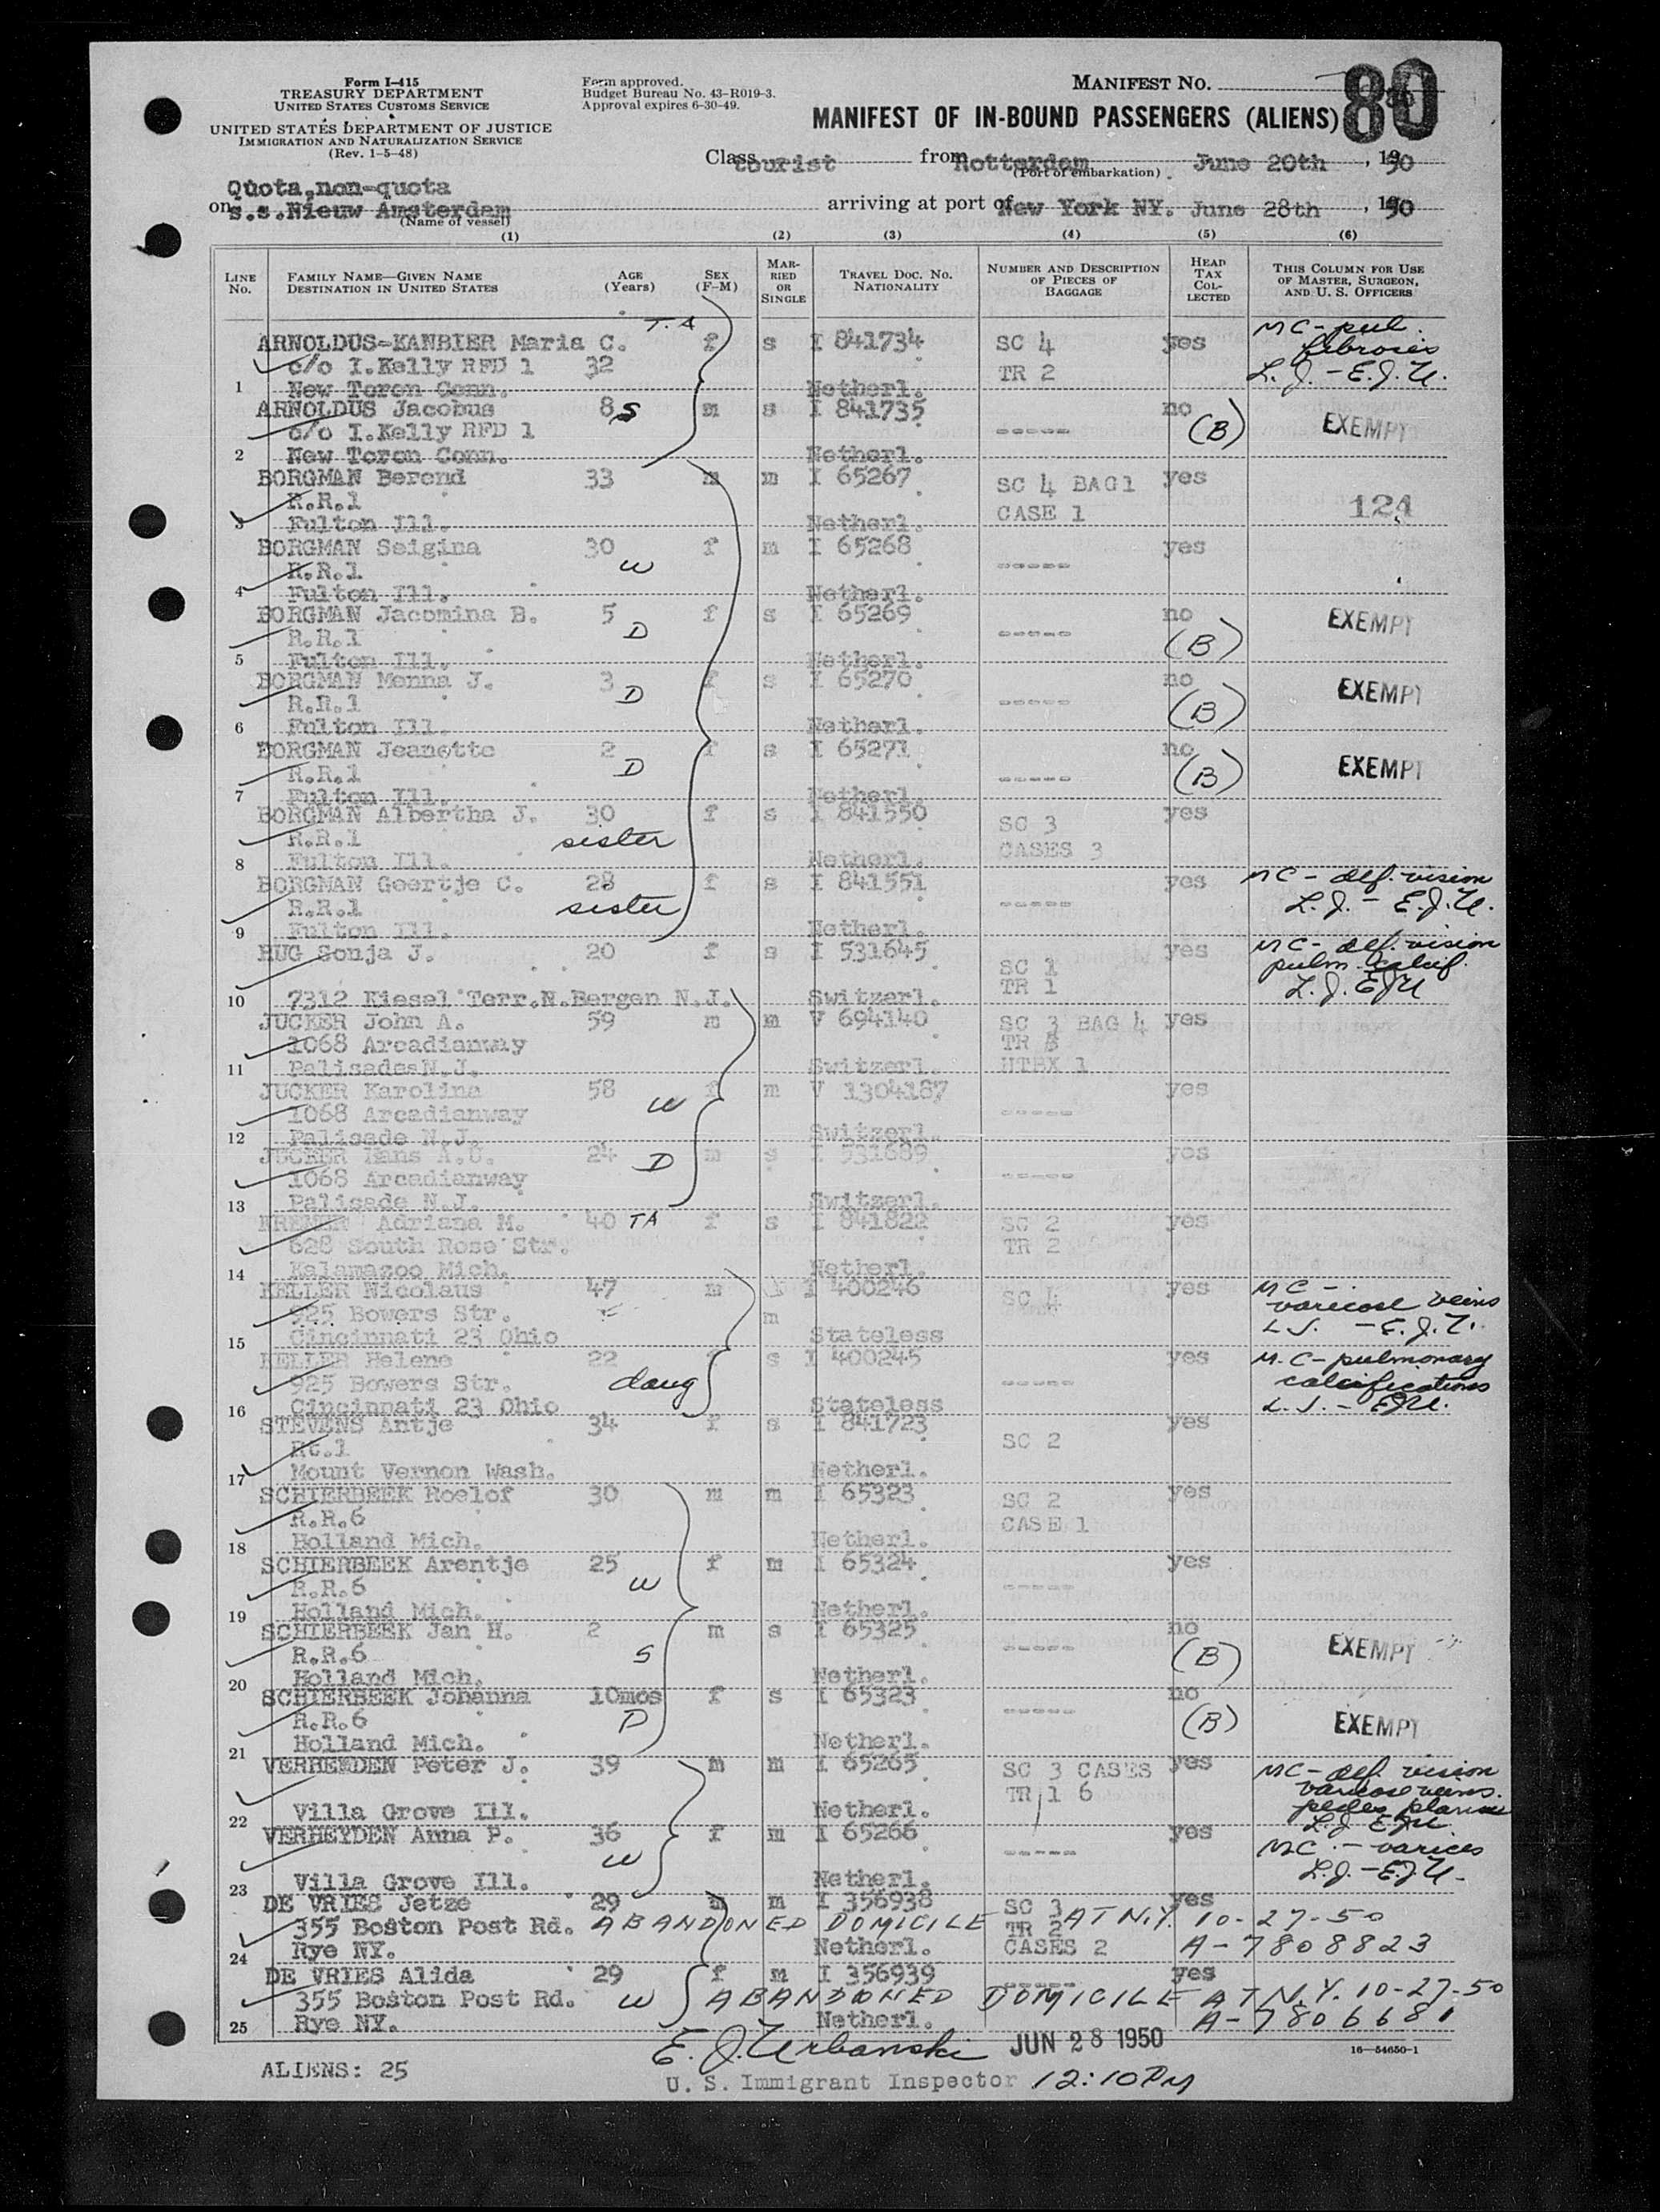 Form I-415
TREASURY DEPARTMENT
UNITED STATES CUSTOMS SERVICE
UNITED STATES DEPARTMENT OF JUSTICE
IMMIGRATION AND NATURALIZATION SERVICE
(Rev. 1-5-48)
Form approved.
Budget Bureau No. 43-R019-3.
Approval expires 6-30-49.
MANIFEST NO. 80
MANIFEST OF IN-BOUND PASSENGERS (ALIENS)
Class tourist from Rotterdam June 20th, 1950
(Port of embarkation)
Quota, non-quota
on s.s. Nieuw Amsterdam arriving at port of New York NY. June 28th, 1950
(Name of vessel)
(1) (2) (3) (4) (5) (6)
LINE No. FAMILY NAME—GIVEN NAME DESTINATION IN UNITED STATES AGE (Years) SEX (F-M) MARRIED OR SINGLE TRAVEL DOC. NO. NATIONALITY NUMBER AND DESCRIPTION OF PIECES OF BAGGAGE HEAD TAX COLLECTED THIS COLUMN FOR USE OF MASTER, SURGEON, AND U. S. OFFICERS
T.A
ARNOLDUS-KANBIER Maria C. f s I 841734 SC 4 yes MC - pul.
c/o I.Kelly RFD 1 32 TR 2 fibrosis
1 New Toron Conn. Netherl. L.J. - E.J.U.
ARNOLDUS Jacobus 8 S m s I 841735 no
c/o I.Kelly RFD 1 ----- (B) EXEMPT
2 New Toron Conn. Netherl.
BORGMAN Berend 33 m m I 65267 SC 4 BAG1 yes
R.R.1 CASE 1 124
3 Fulton Ill. Netherl.
BORGMAN Seigina 30 f m I 65268 yes
R.R.1 W -----
4 Fulton Ill. Netherl.
BORGMAN Jacomina B. 5 f s I 65269 no EXEMPT
R.R.1 D ----- (B)
5 Fulton Ill. Netherl.
BORGMAN Menna J. 3 f s I 65270 no EXEMPT
R.R.1 D ----- (B)
6 Fulton Ill. Netherl.
BORGMAN Jeanette 2 f s I 65271 no EXEMPT
R.R.1 D ----- (B)
7 Fulton Ill. Netherl.
BORGMAN Albertha J. 30 f s I 841550 SC 3 yes
R.R.1 sister CASES 3
8 Fulton Ill. Netherl.
BORGMAN Geertje C. 28 f s I 841551 yes MC - def. vision
R.R.1 sister ----- L.J. - E.J.U.
9 Fulton Ill. Netherl.
HUG Sonja J. 20 f s I 531645 yes MC - def. vision
SC 1 pulm. calcif.
10 7312 Kiesel Terr.N.Bergen N.J. Switzerl. TR 1 L.J. EJU
JUCKER John A. 59 m m V 694140 SC 3 BAG 4 yes
1068 Arcadianway TR
11 Palisades N.J. Switzerl. HTBX 1
JUCKER Karolina 58 f m V 1304187 yes
1068 Arcadianway W -----
12 Palisade N.J. Switzerl.
JUCKER Hans 24 m s I 531689 yes
1068 Arcadianway D -----
13 Palisade N.J. Switzerl.
Adriana M. 40 TA f s I 841822 SC 2 yes
628 South Rose Str. TR 2
14 Kalamazoo Mich. Netherl.
KELLER Nicolaus 47 m I 400246 SC 4 yes MC -
925 Bowers Str. m varicose veins
15 Cincinnati 23 Ohio Stateless L.J. - E.J.U.
KELLER Helene 22 s I 400245 yes M.C - pulmonary
925 Bowers Str. daug ----- calcifications
16 Cincinnati 23 Ohio Stateless L.J. - EJU.
STEVENS Antje 34 f s I 841723 yes
Rt.1 SC 2
17 Mount Vernon Wash. Netherl.
SCHIERBEEK Roelof 30 m m I 65323 SC 2 yes
R.R.6 CASE 1
18 Holland Mich. Netherl.
SCHIERBEEK Arentje 25 f m I 65324 yes
R.R.6 W -----
19 Holland Mich. Netherl.
SCHIERBEEK Jan H. 2 m s I 65325 no
R.R.6 S ----- (B) EXEMPT
20 Holland Mich. Netherl.
SCHIERBEEK Johanna 10mos f s I 65323 no
R.R.6 D ----- (B) EXEMPT
21 Holland Mich. Netherl.
VERHEYDEN Peter J. 39 m m I 65265 SC 3 CASES yes MC - def. vision
TR 1 6 varicose veins.
22 Villa Grove Ill. Netherl. pedes planus L.J. EJU
VERHEYDEN Anna P. 36 f m I 65266 yes MC - varices
W -----
23 Villa Grove Ill. Netherl. L.J. - E.J.U.
DE VRIES Jetze 29 m m I 356938 SC 3 yes
355 Boston Post Rd. ABANDONED DOMICILE TR 2 AT N.Y. 10-27-50
24 Rye NY. Netherl. CASES 2 A-7808823
DE VRIES Alida 29 f m I 356939 ----- yes
355 Boston Post Rd. W ABANDONED DOMICILE AT N.Y. 10-27-50
25 Rye NY. Netherl. A-7806681
E. J. Urbanski JUN 28 1950 16—54650-1
ALIENS: 25 U. S. Immigrant Inspector 12:10 PM